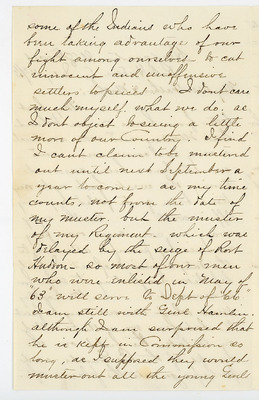 some of the Indians who have
been taking advantage of our
fight among ourselves - to cut
innocent and unoffensive
settlers to pieces I dont care
much myself what we do, as
I dont object to seeing a little
more of our Country. I find
I cant claim to be mustered
out until next September a
year to come - as my time
counts, not from the date of
my muster. but the muster
of my Regiment - which was
delayed by the seige of Port
Hudson - so most of our men
who were enlisted in May of
'63 will serve to Sept of '66
I am still with Genl Hamlin.
although I am surprised that
he is kept in Commission so
long, as I supposed they would
muster out all the young Genl